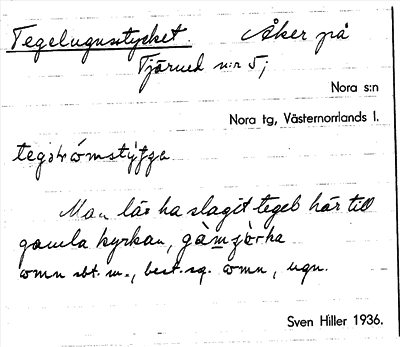 Tegelugnstycket Åker på
Tjärned n:r 5;
Nora s:n
Nora tg, Västernorrlands l.
Man lär ha slagit tegel här till
gamla kyrkan, gàmsjòrka
omn sbt. m., best. sg. omn, ugn.
Sven Hiller 1936.